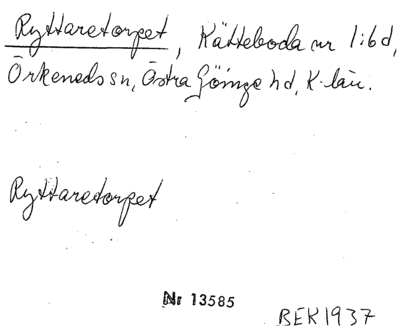 Ryttaretorpet, Kätteboda nr 1:6d,
Örkeneds sn, Östra Göinge hd, K-län.
Ryttaretorpet
Nr 13585
BEK1937